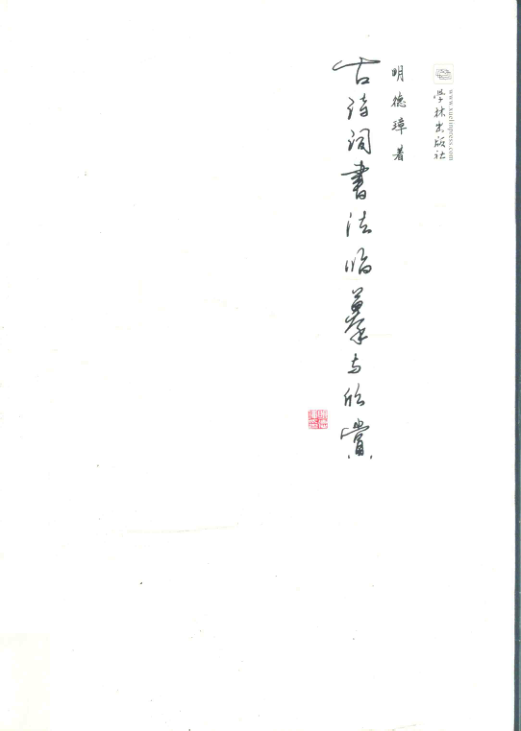 学林出版社
www.xuelinpress.com
明德璋 著
古诗词书法临摹与欣赏